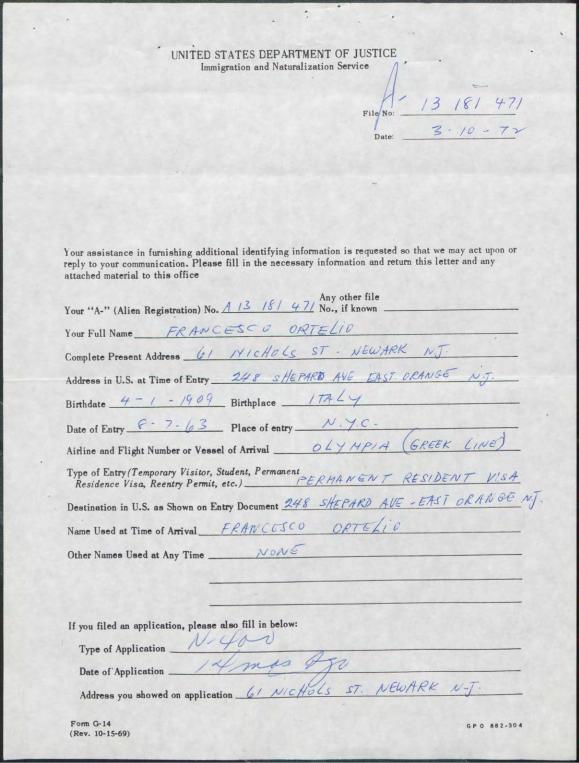 UNITED STATES DEPARTMENT OF JUSTICE
Immigration and Naturalization Service
File No: A- 13 181 471
Date: 3-10-72
Your assistance in furnishing additional identifying information is requested so that we may act upon or
reply to your communication. Please fill in the necessary information and return this letter and any
attached material to this office
Your "A-" (Alien Registration) No. A 13 181 471 Any other file No., if known
Your Full Name FRANCESCO ORTELIO
Complete Present Address 61 NICHOLS ST - NEWARK N.J.
Address in U.S. at Time of Entry 248 SHEPARD AVE EAST ORANGE N.J.
Birthdate 4-1-1909 Birthplace ITALY
Date of Entry 8-7-63 Place of entry N.Y.C.
Airline and Flight Number or Vessel of Arrival OLYMPIA (GREEK LINE)
Type of Entry (Temporary Visitor, Student, Permanent
Residence Visa, Reentry Permit, etc.) PERMANENT RESIDENT VISA
Destination in U.S. as Shown on Entry Document 248 SHEPARD AVE - EAST ORANGE NJ.
Name Used at Time of Arrival FRANCESCO ORTELIO
Other Names Used at Any Time NONE
If you filed an application, please also fill in below:
Type of Application N-400
Date of Application 14 mos Ago
Address you showed on application 61 NICHOLS ST. NEWARK N-J.
Form G-14
(Rev. 10-15-69)
GPO 882-304